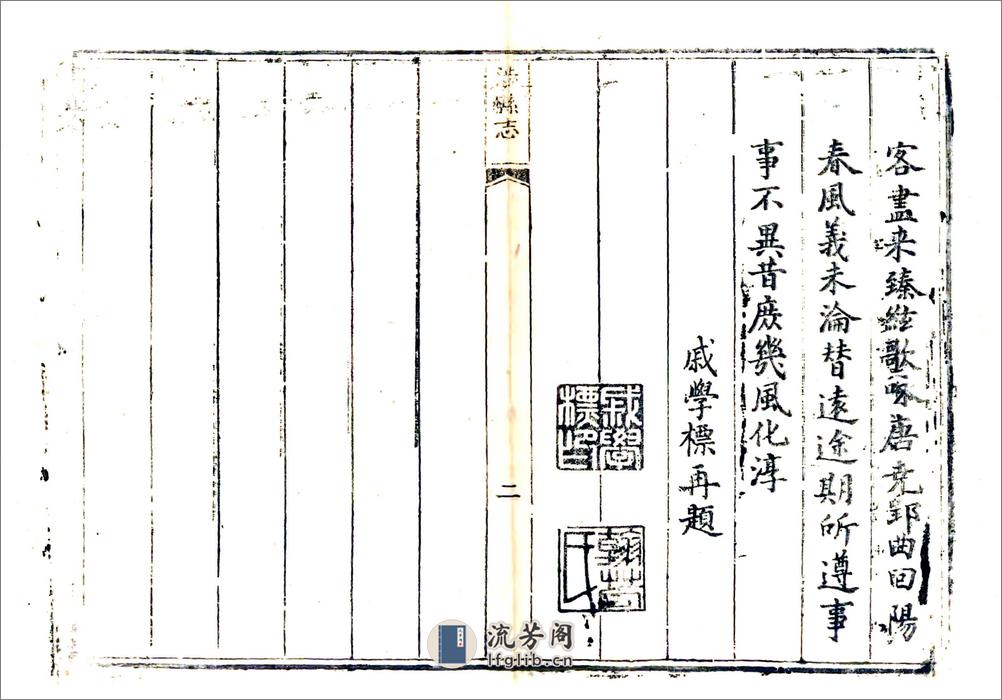 客盡来臻絃歌啄唐尭郢曲囘陽
春風義未淪替遠途期所遵事
事不異昔庻幾風化淳
戚學標再題
戚學
標印
翰芳
氏
涉縣志
二
流芳阁
lfglib.cn